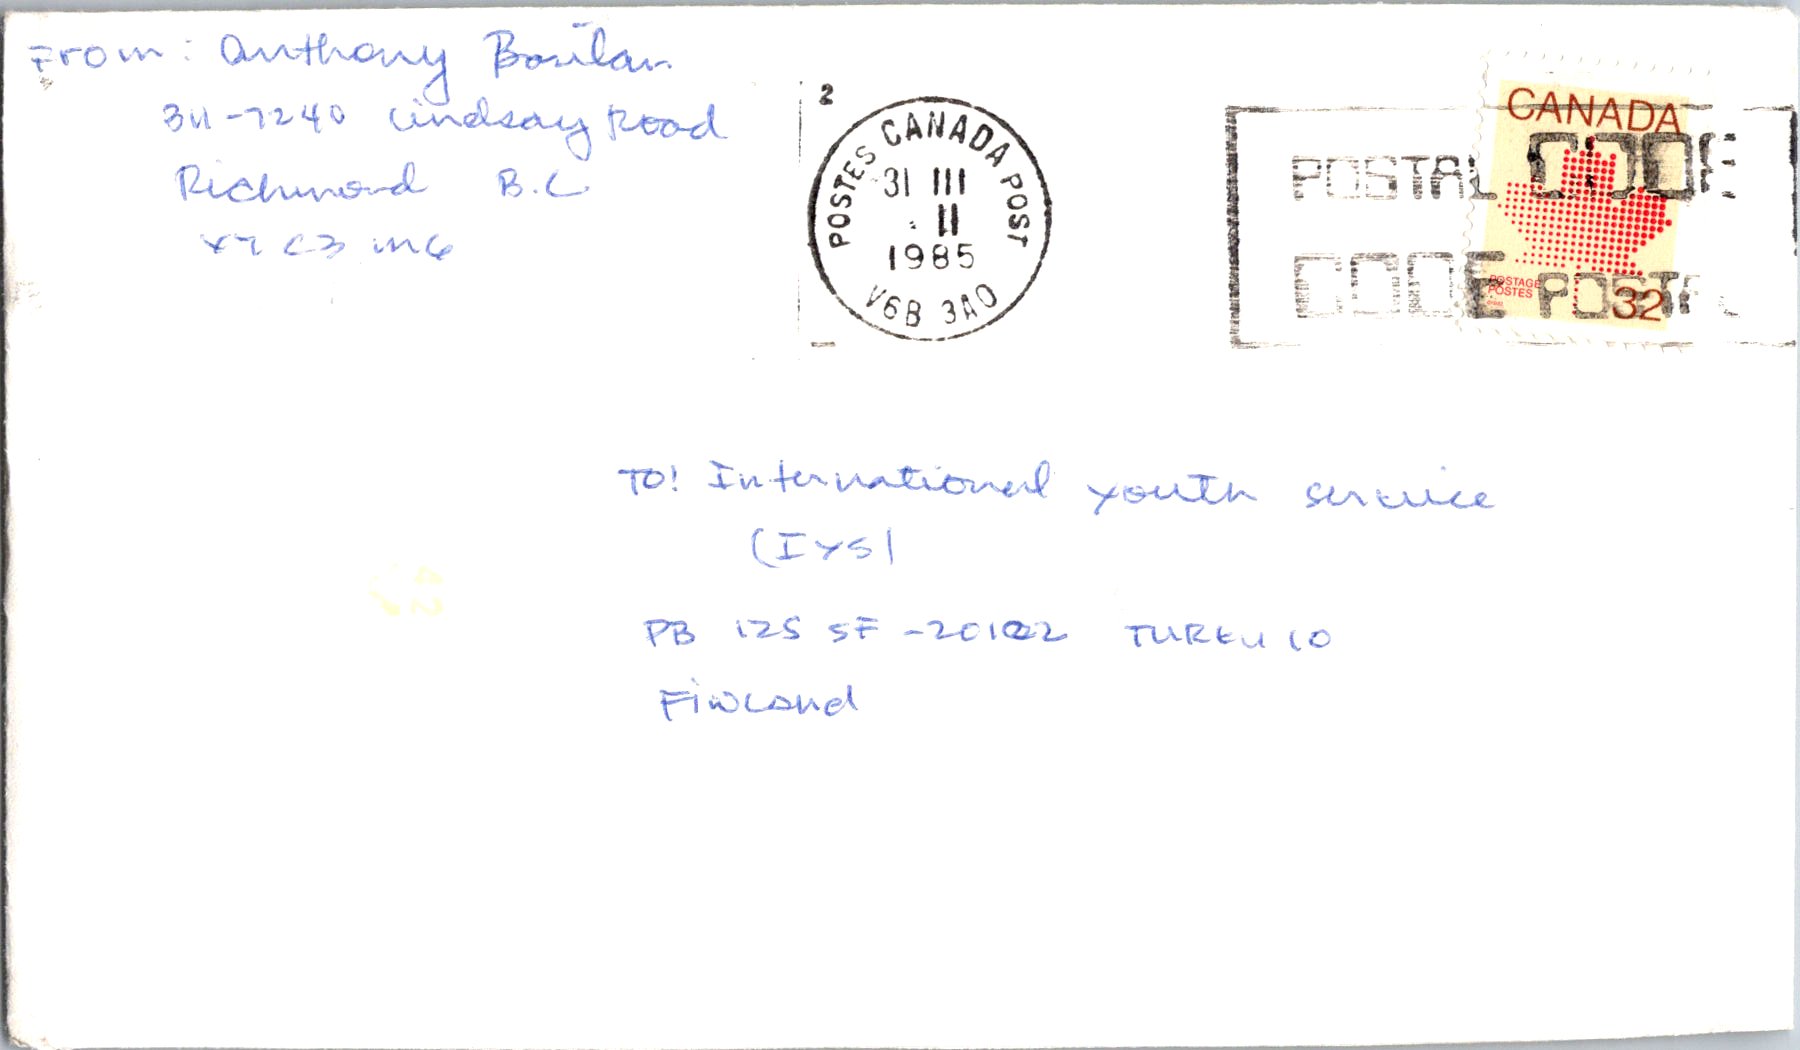 From: Anthony
311-7240 Lindsay Road
Richmond B.C
2
POSTES CANADA POST
31 III
11
1985
V6B 3A0
CANADA
POSTAL CODE
CODE POSTAL
POSTAGE
POSTES
32
TO: International youth service
(IYS)
PB 125 SF-20102 TURKU 10
Finland